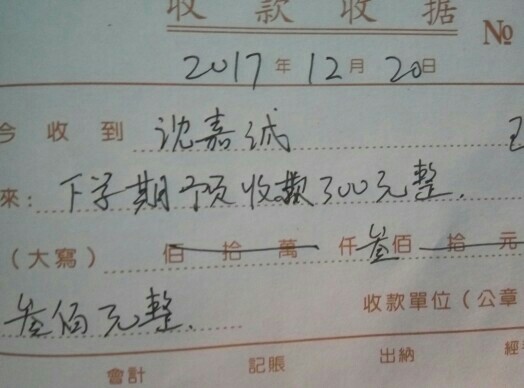 收款收据 №
2017年12月20日
今收到 沈嘉诚
来: 下学期预收款300元整.
(大寫) 佰拾萬仟叁佰拾元
叁佰元整. 收款單位(公章
會計 記賬 出納 經